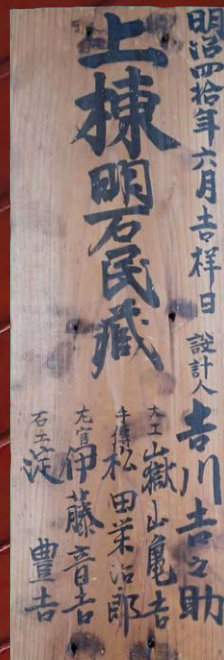 明治四拾年六月吉祥日
設計人 吉川吉之助
上棟 明石民蔵
大工 嶽山亀吉
手傳 松田栄治郎
左官 伊藤音吉
石工 淀豊吉